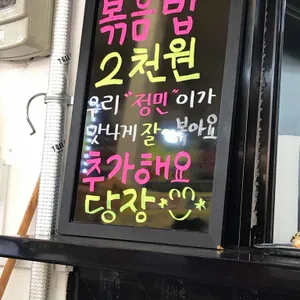 볶음밥
2천원
우리 "정민"이가
맛나게 잘~ 볶아요
추가해요
당장